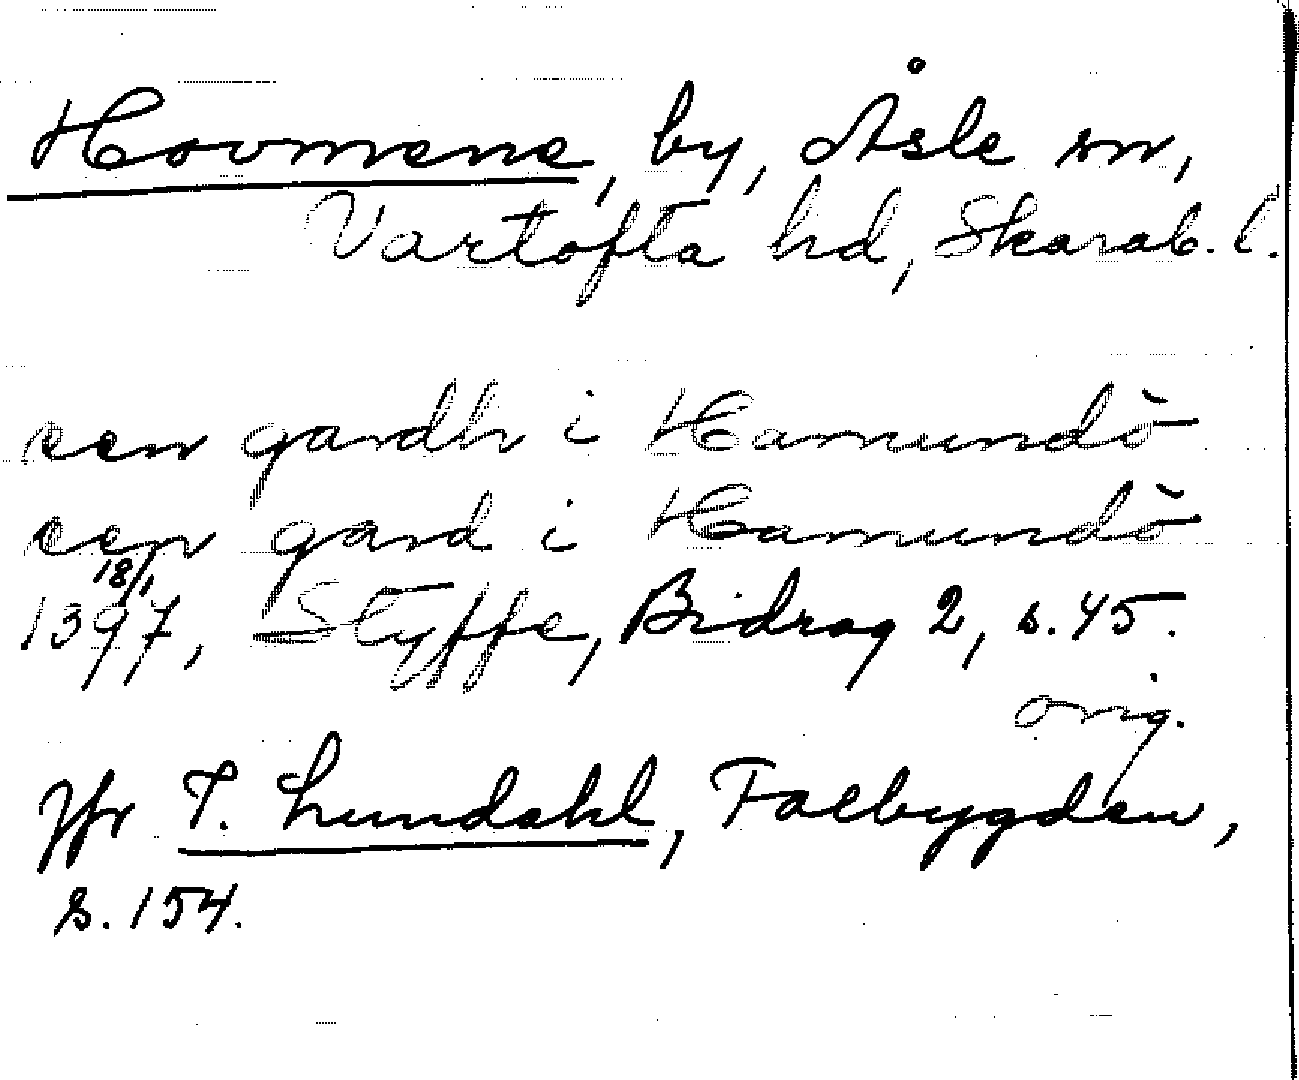 Hovmene, by, Åsle sn,
Vartofta hd, Skarab. l.
een gardh i Hamundö
een gard i Hamundö
1397 18/1, Styffe, Bidrag 2, s. 45.
orig.
Jfr I. Lundahl, Falbygden,
s. 154.